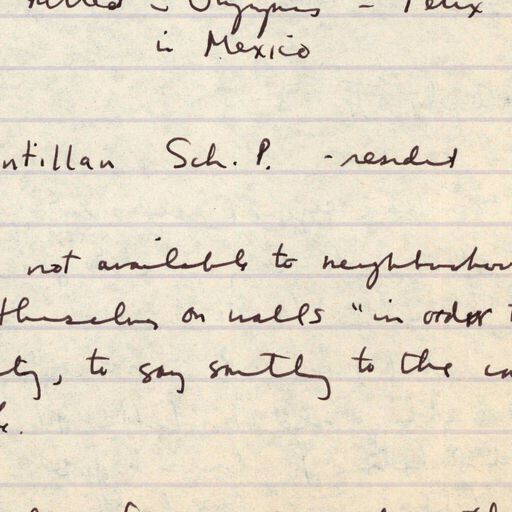 in Mexico
ntillan Sch. P. - resident
not available to neighborhoo
themselves on walls "in order t
ty, to say smthg to the